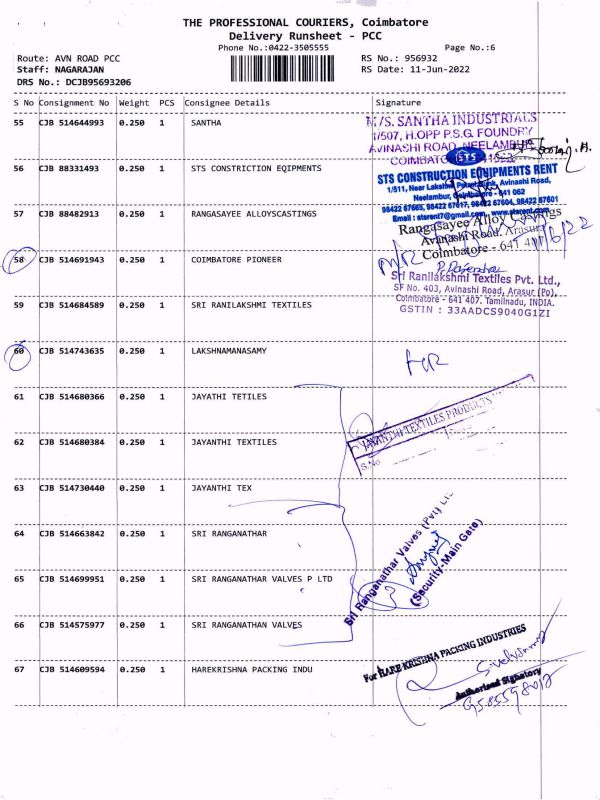 THE PROFESSIONAL COURIERS, Coimbatore
Delivery Runsheet - PCC
Phone No.:0422-3505555
Page No.:6
Route: AVN ROAD PCC
RS No.: 956932
Staff: NAGARAJAN
RS Date: 11-Jun-2022
DRS No.: DCJB95693206
S No Consignment No Weight PCS Consignee Details Signature
55 CJB 514644993 0.250 1 SANTHA
M/S. SANTHA INDUSTRIALS
1/507, H.OPP P.S.G. FOUNDRY
AVINASHI ROAD, NEELAMBUR
COIMBATORE
STS
56 CJB 88331493 0.250 1 STS CONSTRICTION EQIPMENTS
STS CONSTRUCTION EQUIPMENTS RENT
1/511, Near Lakshmi Petrol Bunk, Avinashi Road,
Neelambur, Coimbatore - 641 062
98422 67665, 98422 67617, 98422 67604, 98422 67601
Email : starent7@gmail.com,
57 CJB 88482913 0.250 1 RANGASAYEE ALLOYSCASTINGS
RangaSayee Alloy Castings
Avinashi Road. Arasur
Coimbatore - 641 407
58 CJB 514691943 0.250 1 COIMBATORE PIONEER
59 CJB 514684589 0.250 1 SRI RANILAKSHMI TEXTILES
Sri Ranilakshmi Textiles Pvt. Ltd.,
SF No. 403, Avinashi Road, Arasur (Po),
Coimbatore - 641 407. Tamilnadu, INDIA.
GSTIN : 33AADCS9040G1ZI
60 CJB 514743635 0.250 1 LAKSHNAMANASAMY
61 CJB 514680366 0.250 1 JAYATHI TETILES
62 CJB 514680384 0.250 1 JAYANTHI TEXTILES
JAYANTHI TEXTILES PRODUCTS
S.No
63 CJB 514730440 0.250 1 JAYANTHI TEX
64 CJB 514663842 0.250 1 SRI RANGANATHAR
65 CJB 514699951 0.250 1 SRI RANGANATHAR VALVES P LTD
Sri Ranganathar Valves (Pvt) Ltd
(Security-Main Gate)
3
66 CJB 514575977 0.250 1 SRI RANGANATHAN VALVES
67 CJB 514609594 0.250 1 HAREKRISHNA PACKING INDU
For HARE KRISHNA PACKING INDUSTRIES
Authorised Signatory